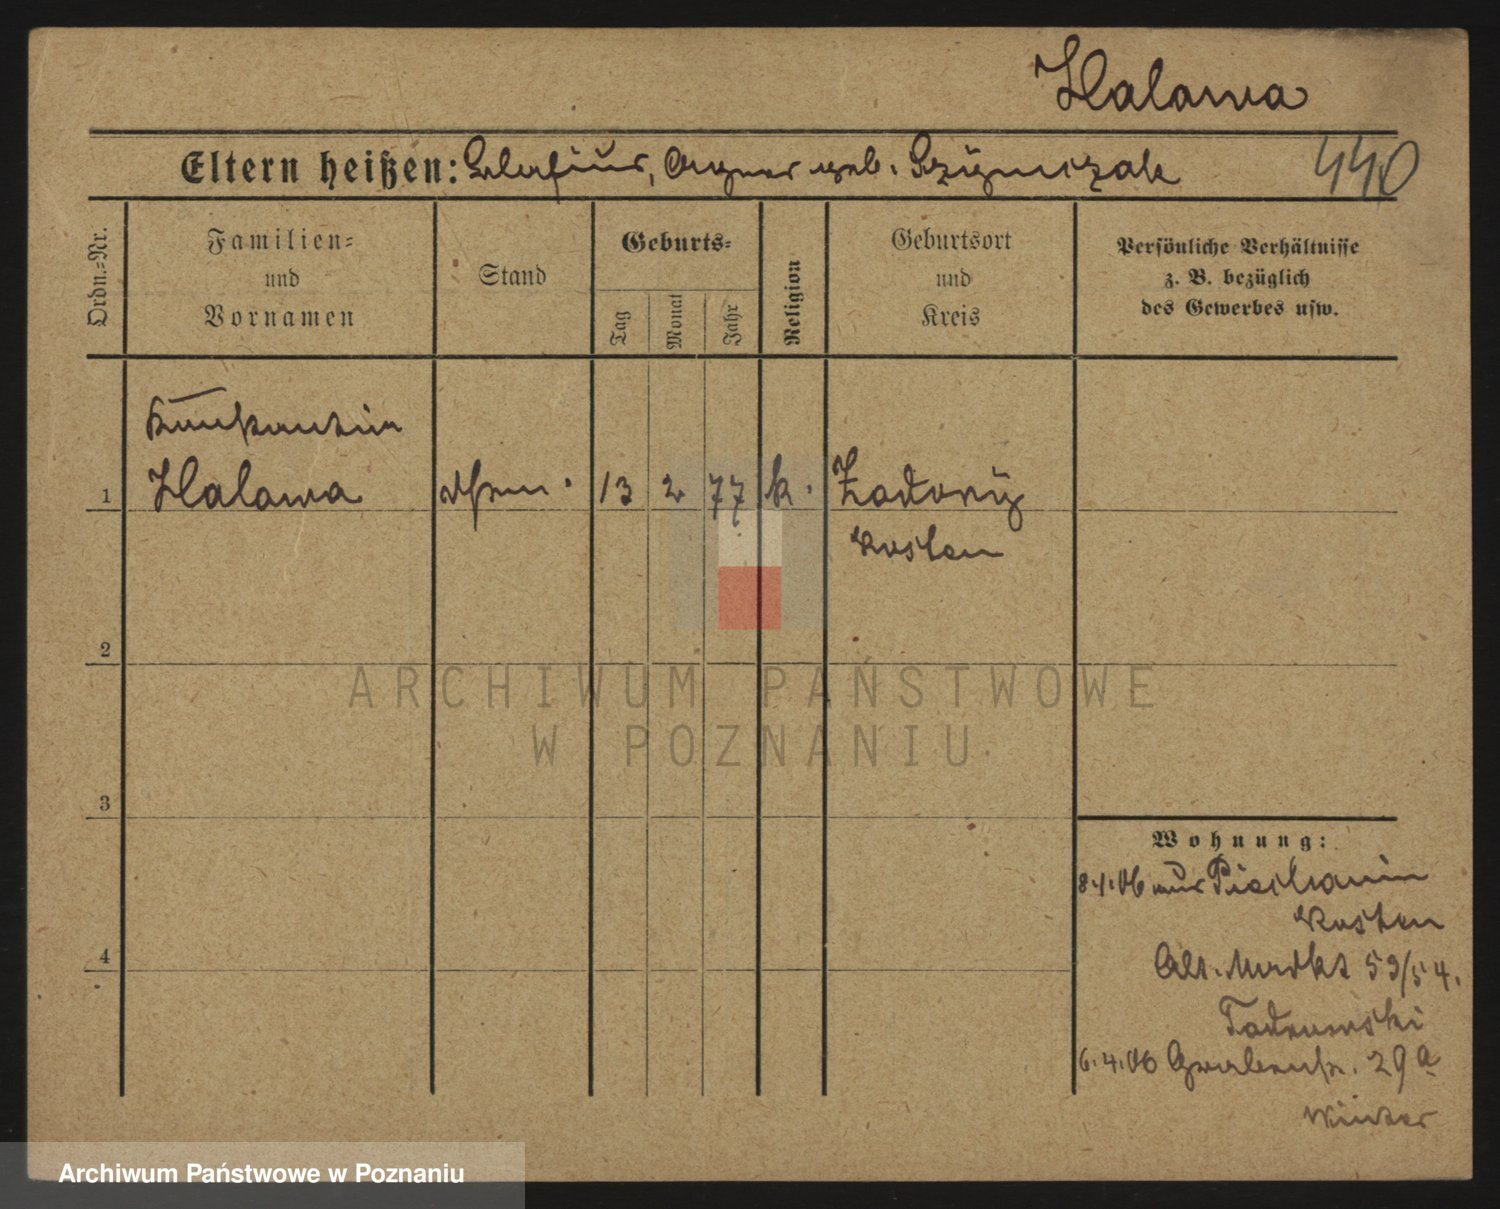 Halawa
Eltern heißen: Stefan, Agnes geb. Szymczak
440
Ordn.=Nr.
Familien=
und
Vornamen
Stand
Geburts=
Tag
Monat
Jahr
Religion
Geburtsort
und
Kreis
Persönliche Verhältnisse
z. B. bezüglich
des Gewerbes usw.
Konstantin
1 Halawa 13 2 77 k. Zadory
Kosten
2
3
4
Wohnung:
8.1.06 aus
Kosten
Alt. Markt 53/54.
6.4.06 Grabenstr. 29a
ARCHIWUM PAŃSTWOWE
W POZNANIU
Archiwum Państwowe w Poznaniu